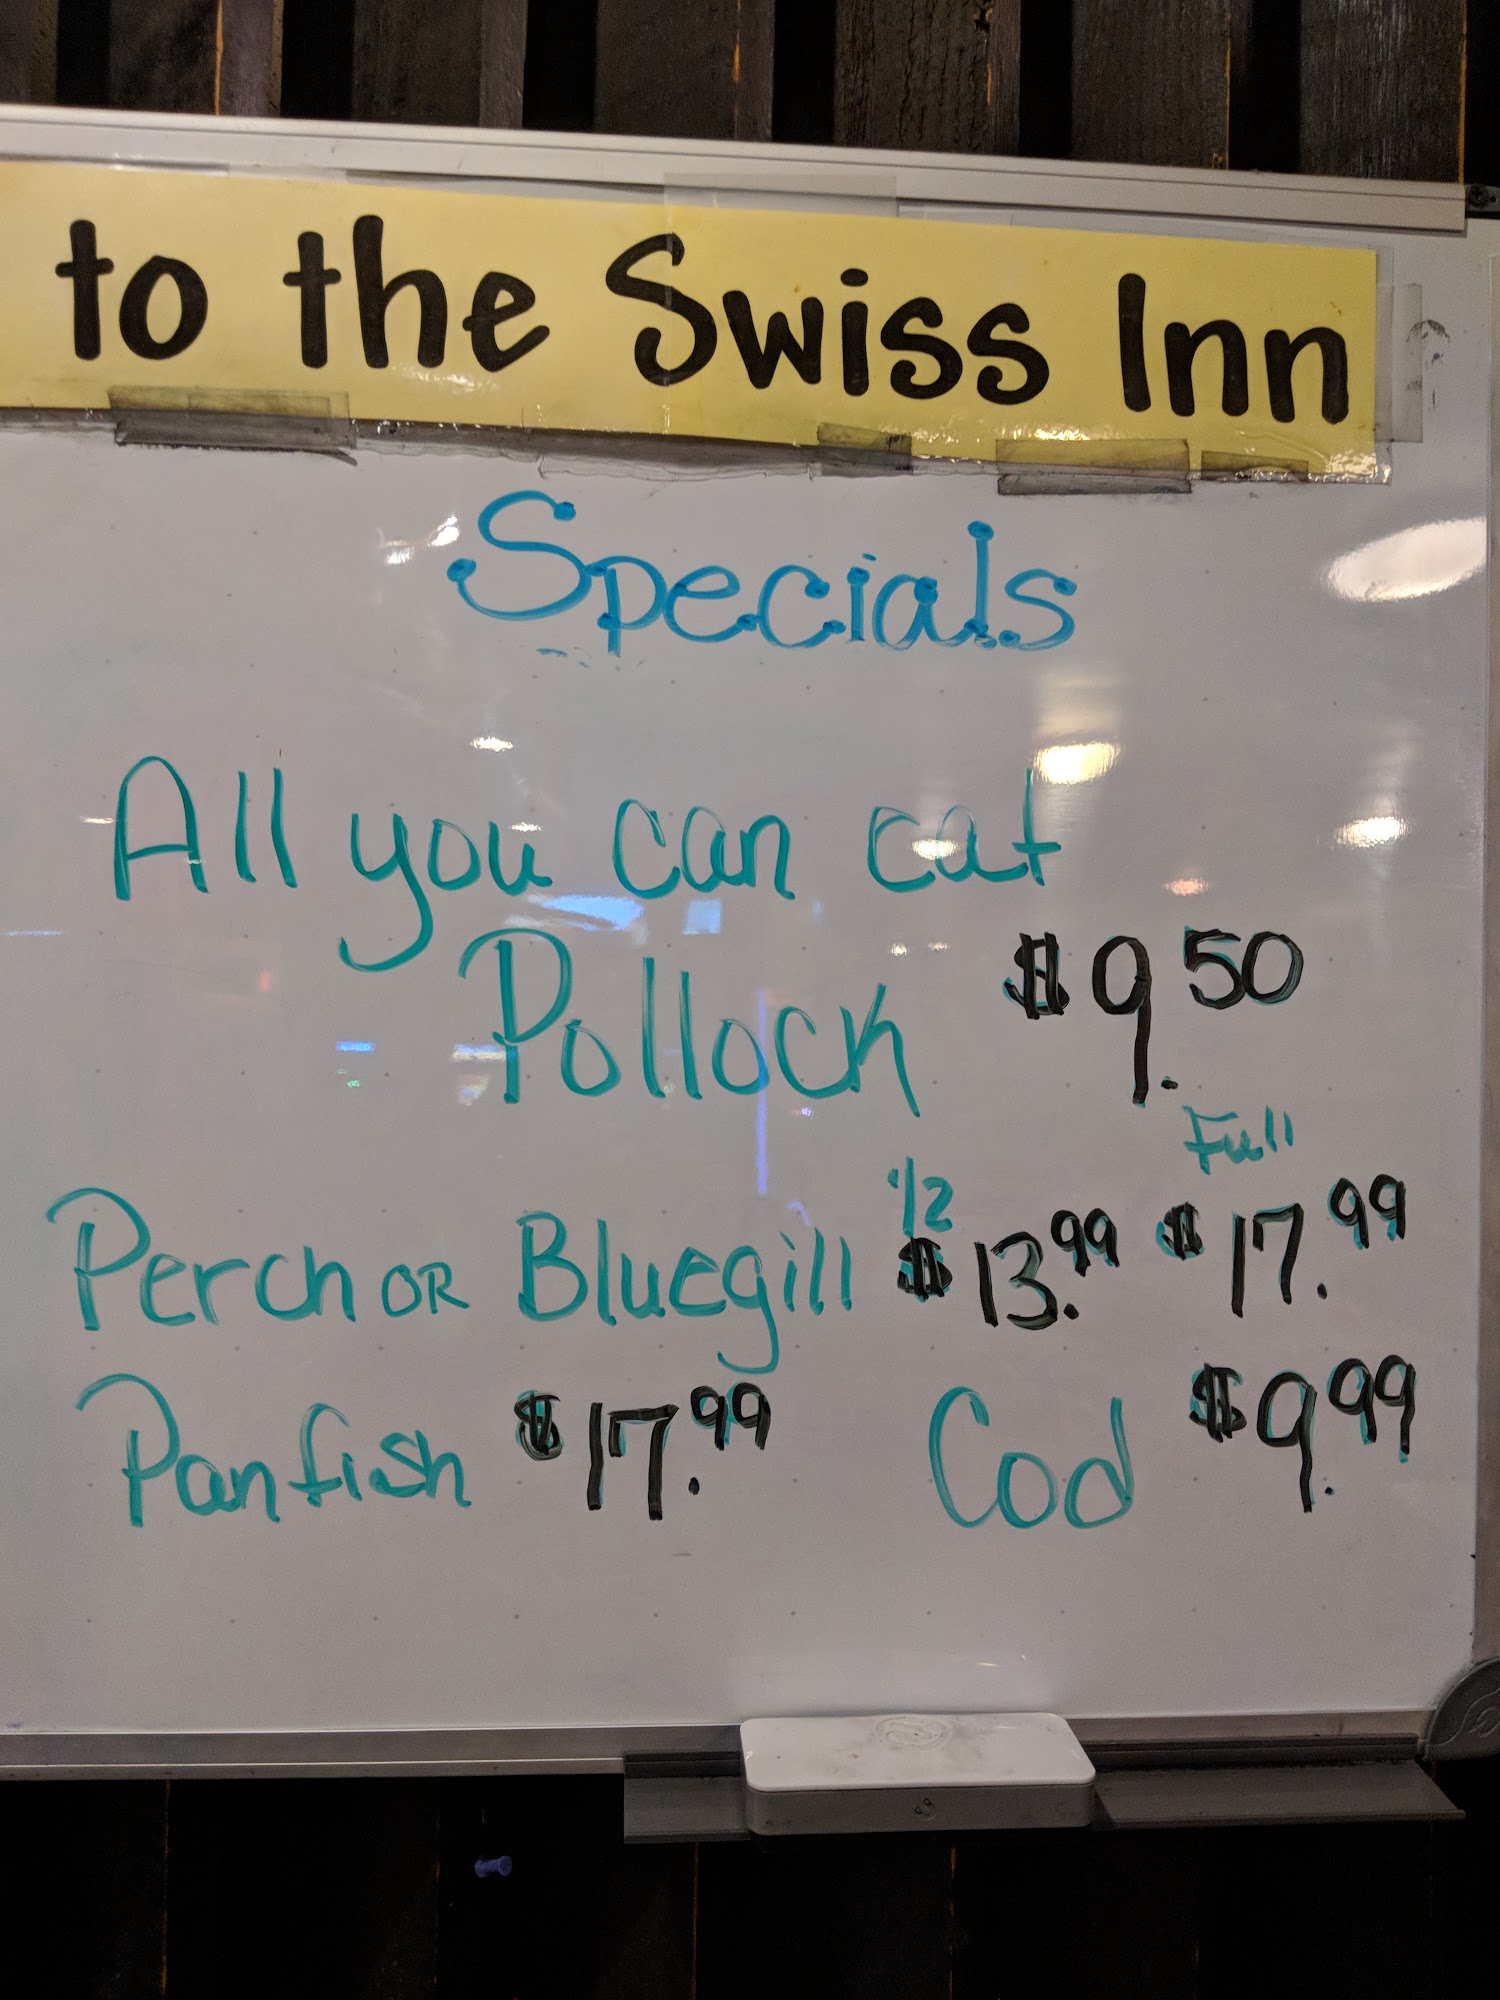 to the Swiss Inn
Specials
All you can eat
Pollock $9.50
1/2 Full
Perch OR Bluegill $13.99 $17.99
Panfish $17.99 Cod $9.99